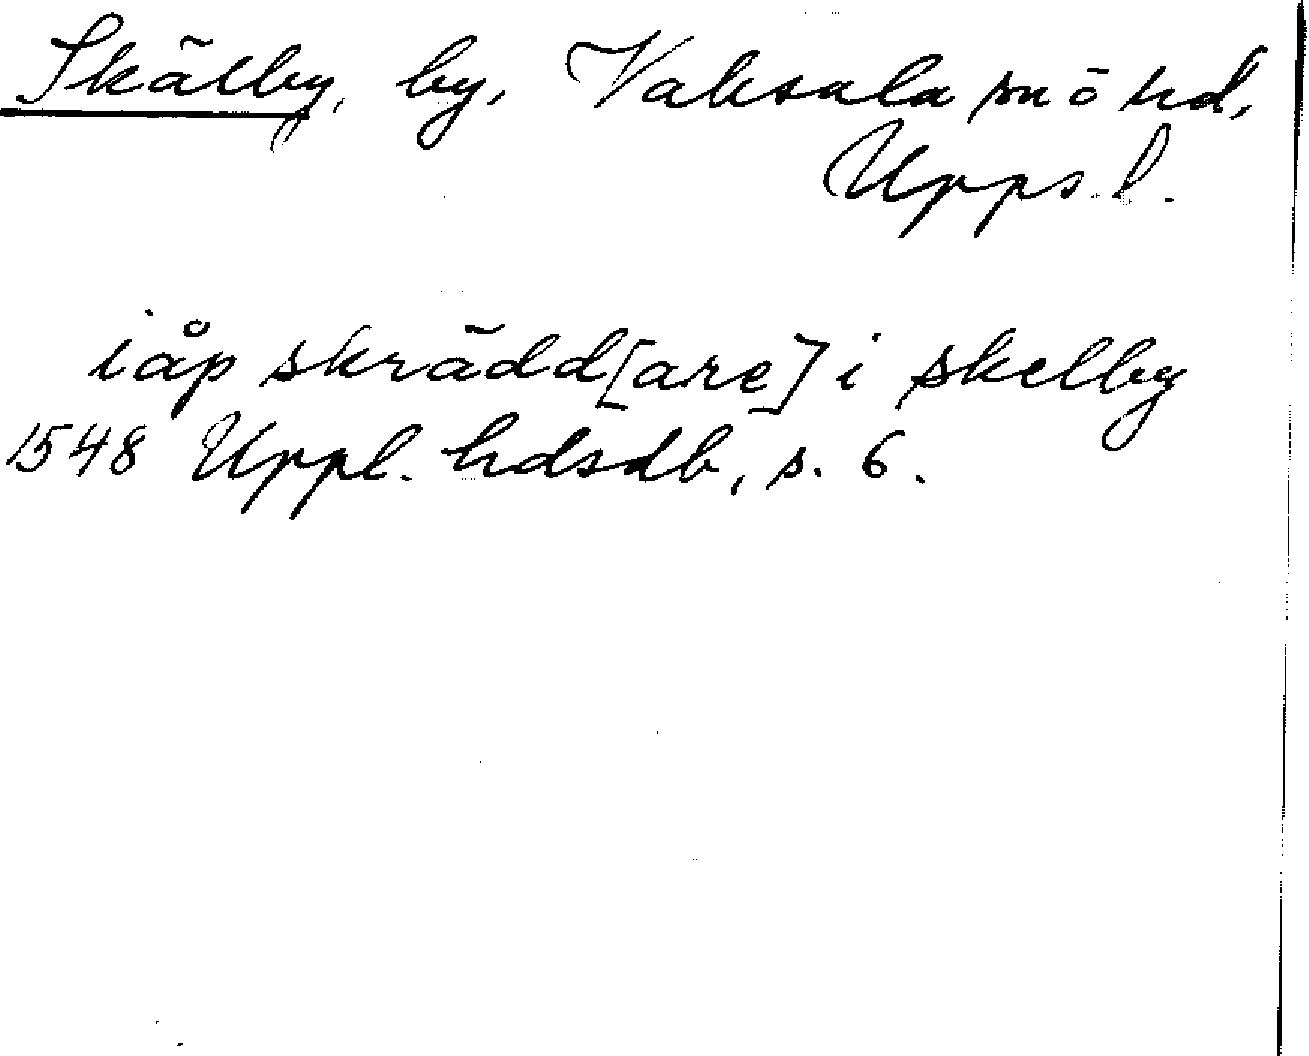 Skälby, by, Vaksala sn ō hd,
Upps. l.
iåp skrädd[are] i skelby
1548 Uppl. hdsdb, s. 6.